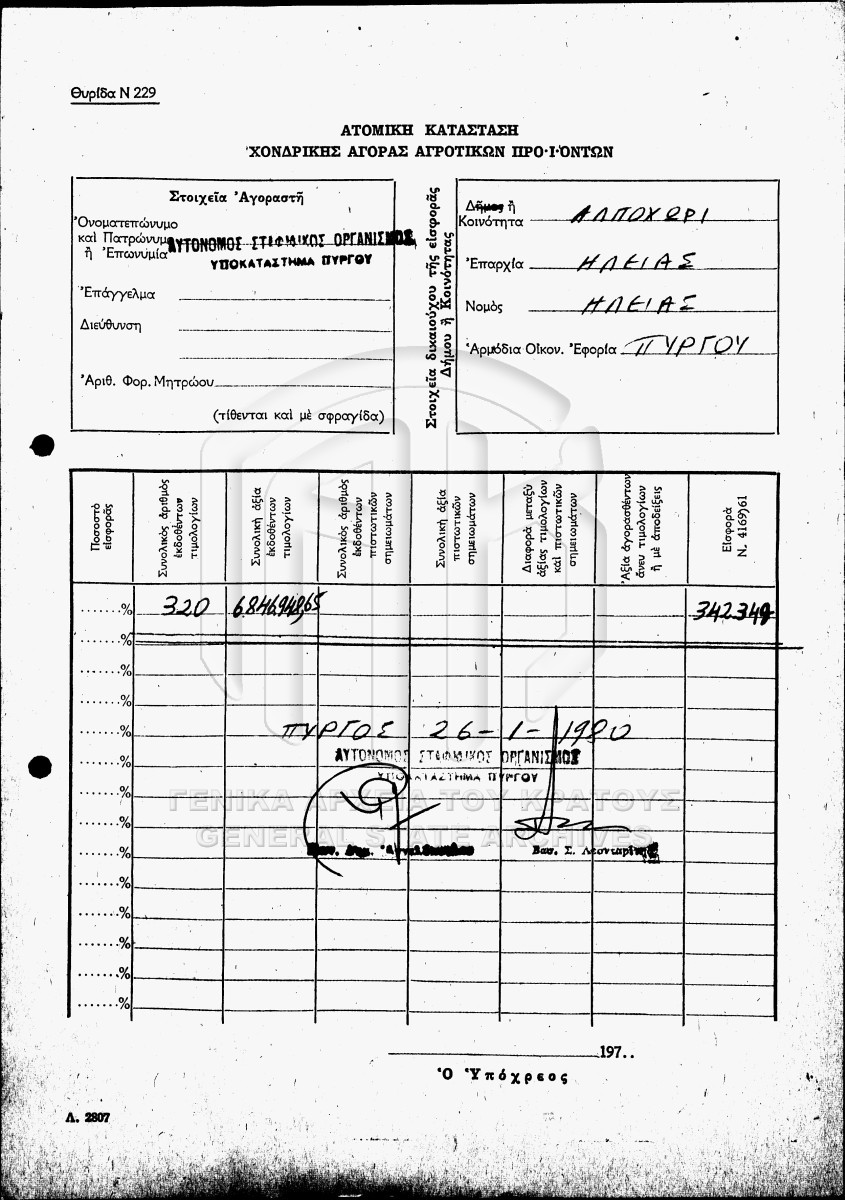 Θυρίδα Ν 229
ΑΤΟΜΙΚΗ ΚΑΤΑΣΤΑΣΗ
ΧΟΝΔΡΙΚΗΣ ΑΓΟΡΑΣ ΑΓΡΟΤΙΚΩΝ ΠΡΟ·Ι·ΟΝΤΩΝ
Στοιχεῖα Ἀγοραστῆ
Ὀνοματεπώνυμο
καὶ Πατρώνυμο
ἢ Ἐπωνυμία
ΑΥΤΟΝΟΜΟΣ ΣΤΑΦΙΔΙΚΟΣ ΟΡΓΑΝΙΣΜΟΣ
ΥΠΟΚΑΤΑΣΤΗΜΑ ΠΥΡΓΟΥ
Ἐπάγγελμα
Διεύθυνση
Ἀριθ. Φορ. Μητρώου
(τίθενται καὶ μὲ σφραγίδα)
Στοιχεῖα δικαιούχου τῆς εἰσφορᾶς
Δήμου ἢ Κοινότητας
Δῆμος ἢ
Κοινότητα ΑΛΠΟΧΩΡΙ
Ἐπαρχία ΗΛΕΙΑΣ
Νομὸς ΗΛΕΙΑΣ
Ἁρμόδια Οἰκον. Ἐφορία ΠΥΡΓΟΥ
Ποσοστὸ εἰσφορᾶς
Συνολικὸς ἀριθμὸς ἐκδοθέντων τιμολογίων
Συνολικὴ ἀξία ἐκδοθέντων τιμολογίων
Συνολικὸς ἀριθμὸς ἐκδοθέντων πιστωτικῶν σημειωμάτων
Συνολικὴ ἀξία πιστωτικῶν σημειωμάτων
Διαφορὰ μεταξὺ ἀξίας τιμολογίων καὶ πιστωτικῶν σημειωμάτων
Ἀξία ἀγορασθέντων ἄνευ τιμολογίων ἢ μὲ ἀποδείξεις
Εἰσφορὰ Ν. 4169)61
.......% 320 6.846.948,65 342.348
.......%
.......%
.......%
.......% ΠΥΡΓΟΣ 26-1-1980
ΑΥΤΟΝΟΜΟΣ ΣΤΑΦΙΔΙΚΟΣ ΟΡΓΑΝΙΣΜΟΣ
.......% ΥΠΟΚΑΤΑΣΤΗΜΑ ΠΥΡΓΟΥ
.......%
ΓΕΝΙΚΑ ΑΡΧΕΙΑ ΤΟΥ ΚΡΑΤΟΥΣ
.......%
GENERAL STATE ARCHIVES
.......% Βασ. Σ.
.......%
.......%
.......%
.......%
.......%
197..
Ὁ Ὑπόχρεος
Λ. 2807